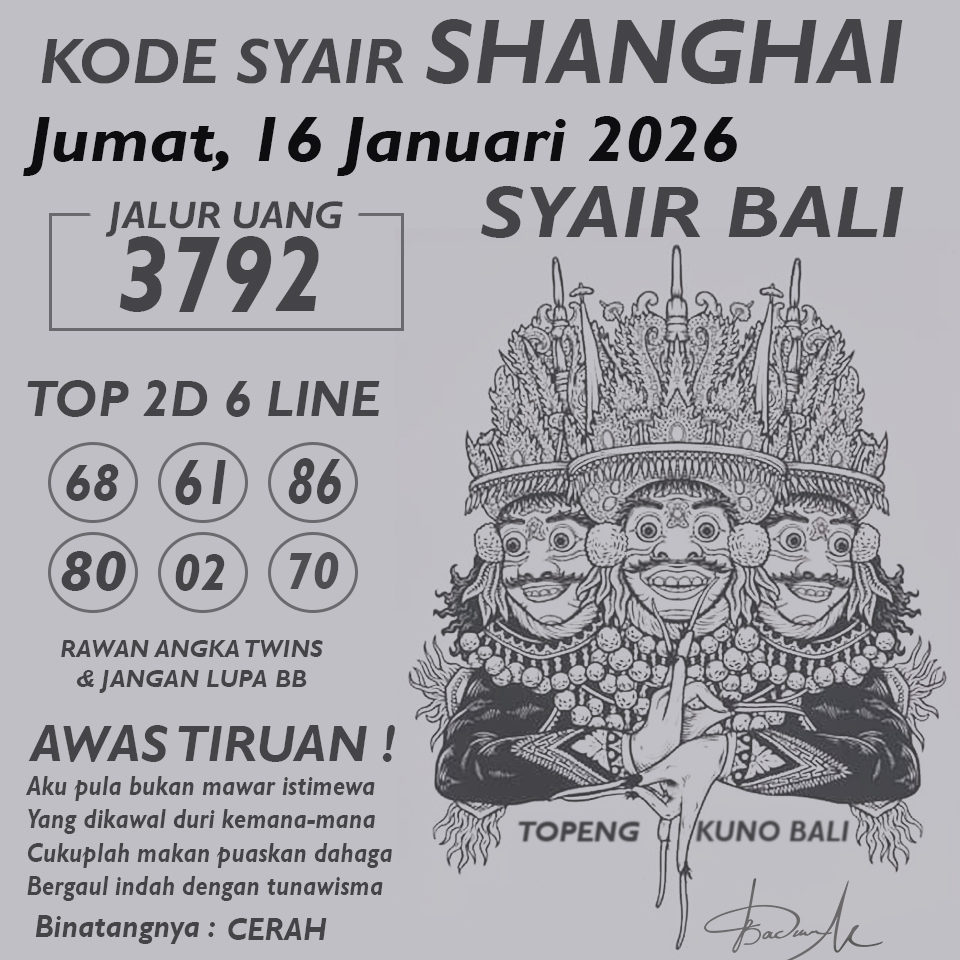 KODE SYAIR SHANGHAI
Jumat, 16 Januari 2026
SYAIR BALI
JALUR UANG
3792
TOP 2D 6 LINE
68 61 86
80 02 70
RAWAN ANGKA TWINS
& JANGAN LUPA BB
AWAS TIRUAN !
Aku pula bukan mawar istimewa
Yang dikawal duri kemana-mana
Cukuplah makan puaskan dahaga
Bergaul indah dengan tunawisma
Binatangnya : CERAH
TOPENG KUNO BALI